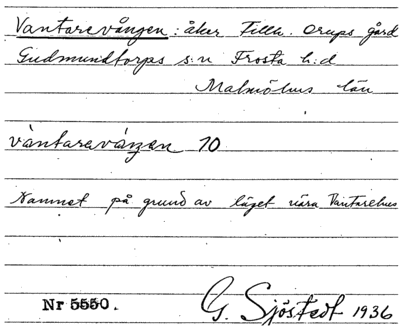 Vantarevången: åker Tillh. Orups gård
Gudmundtorps s:n Frosta h:d
Malmöhus län
vàntareváŋen 10
Namnet på grund av läget nära Vantarehus
Nr 5550.
G. Sjöstedt 1936